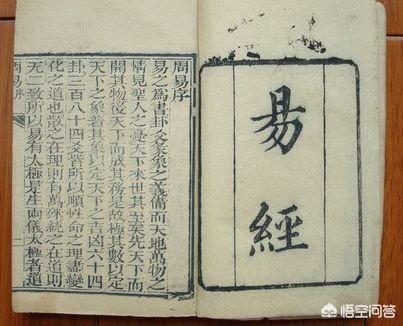 易經
周易序
易之為書卦爻彖象之義備而天地萬物之
情見聖人之憂天下來世其至矣先天下而
開其物後天下而成其務是故極其數以定
天下之象著其象以定天下之吉凶六十四
卦三百八十四爻皆所以順性命之理盡變
化之道也散之在理則有萬殊統之在道則
无二致所以易有太極是生兩儀太極者道
周易序
悟空问答